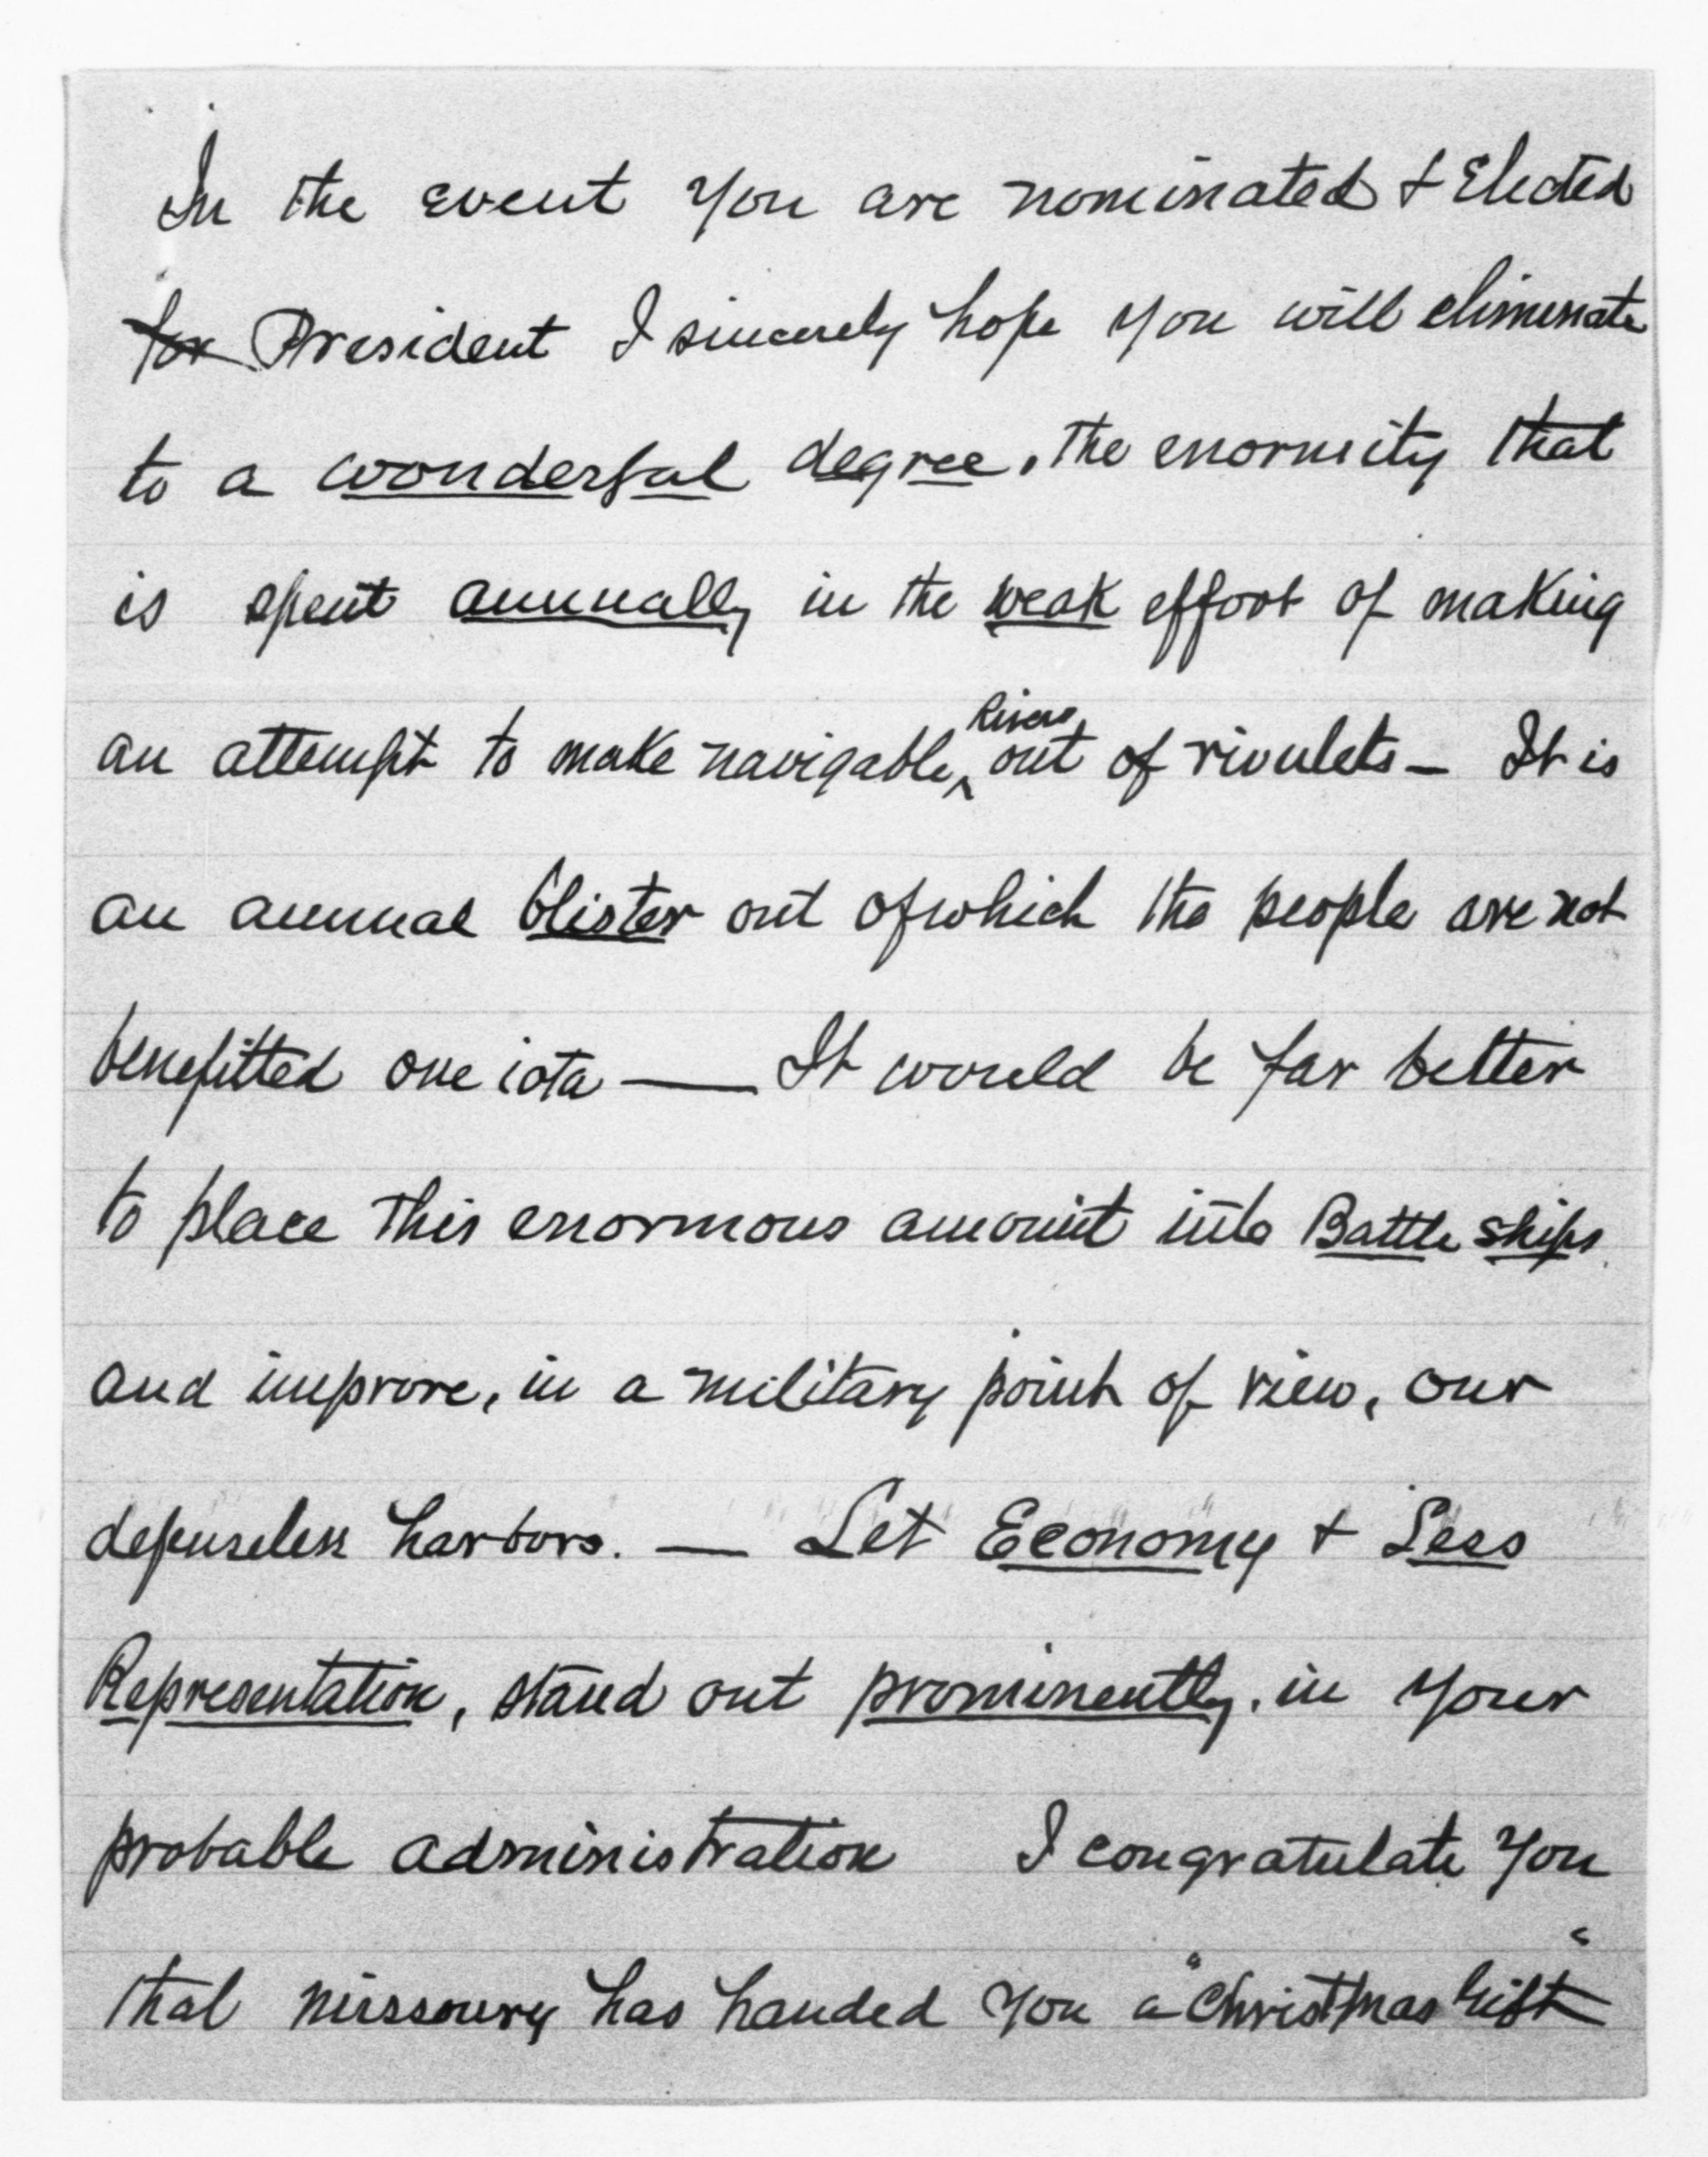 In the event you are nominated & Elected
for President I sincerely hope you will eliminate
to a wonderful degree, the enormity that
is spent annually in the weak effort of making
an attempt to make navigable Rivers out of rivulets — It is
an annual blister out of which the people are not
benefitted one iota — It would be far better
to place this enormous amount into Battle ships
and improve, in a military point of view, our
defenseless harbors. — Let Economy & Less
Representation, stand out prominently, in your
probable administration I congratulate you
that Missoury has handed you a "Christmas Gift"